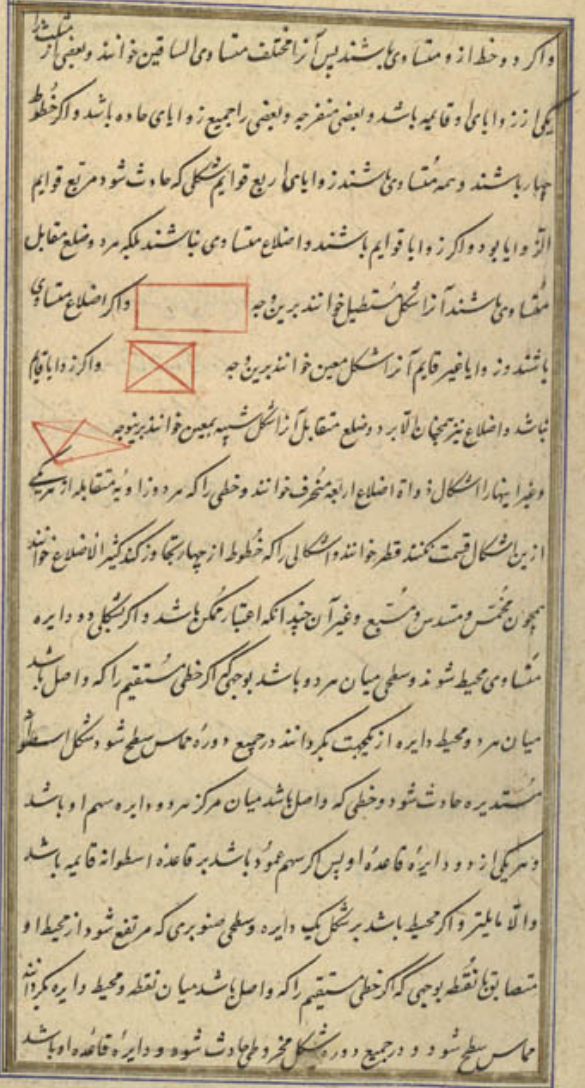 واکر دو خط از و متساوی باشند پس آنرا مختلف متساوی الساقین خوانند و بعضی از مثلث را
یکی از زوایای او قائمه باشد و بعضی منفرجه و بعضی را جمیع زوایای حاده باشد واکر خطوط
چهار باشند و همه متساوی باشند زوایای اربع قوایم شکلی که حادث شود مربع قوایم
الزوایا بود واکر زوایا قوایم باشند و اضلاع متساوی نباشند بلکه هر دو ضلع مقابل
متساوی باشند آنرا شکل مستطیل خوانند برین وجه واکر اضلاع متساوی
باشند و زوایا غیر قایم آنرا شکل معین خوانند برین وجه واکر زوایا قایم
نباشد و اضلاع نیز همچنان الا بر دو ضلع متقابل آنرا شکل شبیه بمعین خوانند برینوجه
وغیر اینها را اشکال ذواة اضلاع اربعه منحرف خوانند و خطی را که هر دو زاویه متقابله از هر یکی
ازین اشکال قسمت نکنند قطر خوانند و اشکالی را که خطوط از چهار تجاوز کند کثیر الاضلاع خوانند
همچون مخمس و مسدس و مسبع و غیر آن چندانکه اعتبار ممکن باشد واکر بشکلی دو دایره
متساوی محیط شوند و سطحی میان هر دو باشد بوجهی اکر خطی مستقیم را که واصل باشد
میان هر دو محیط دایره از یکجهت بکردانند در جمیع دوره مماس سطح شود شکل اسطوانه
مستدیره حادث شود و خطی که واصل باشد میان مرکز هر دو دایره سهم او باشد
و هر یکی از دو دایرهٔ قاعدهٔ او پس اکر سهم عمود باشد بر قاعده اسطوانه قائمه باشد
والا مایلتر واکر محیط باشد بر شکل یک دایره و سطحی صنوبری که مرتفع شود از محیط او
متصایق با نقطه بوجهی که اکر خطی مستقیم را که واصل باشد میان نقطه و محیط دایره کردانند
مماس سطح شود و در جمیع دوره شکل مخروطی حادث شود و دایرهٔ قاعدهٔ او باشد